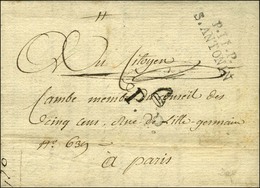 P.II.P.
S. ANTONIN
Au Citoyen
Cambe membre du Conseil des
Cinq Cens, Rue de Lille germain
N.° 639
à paris